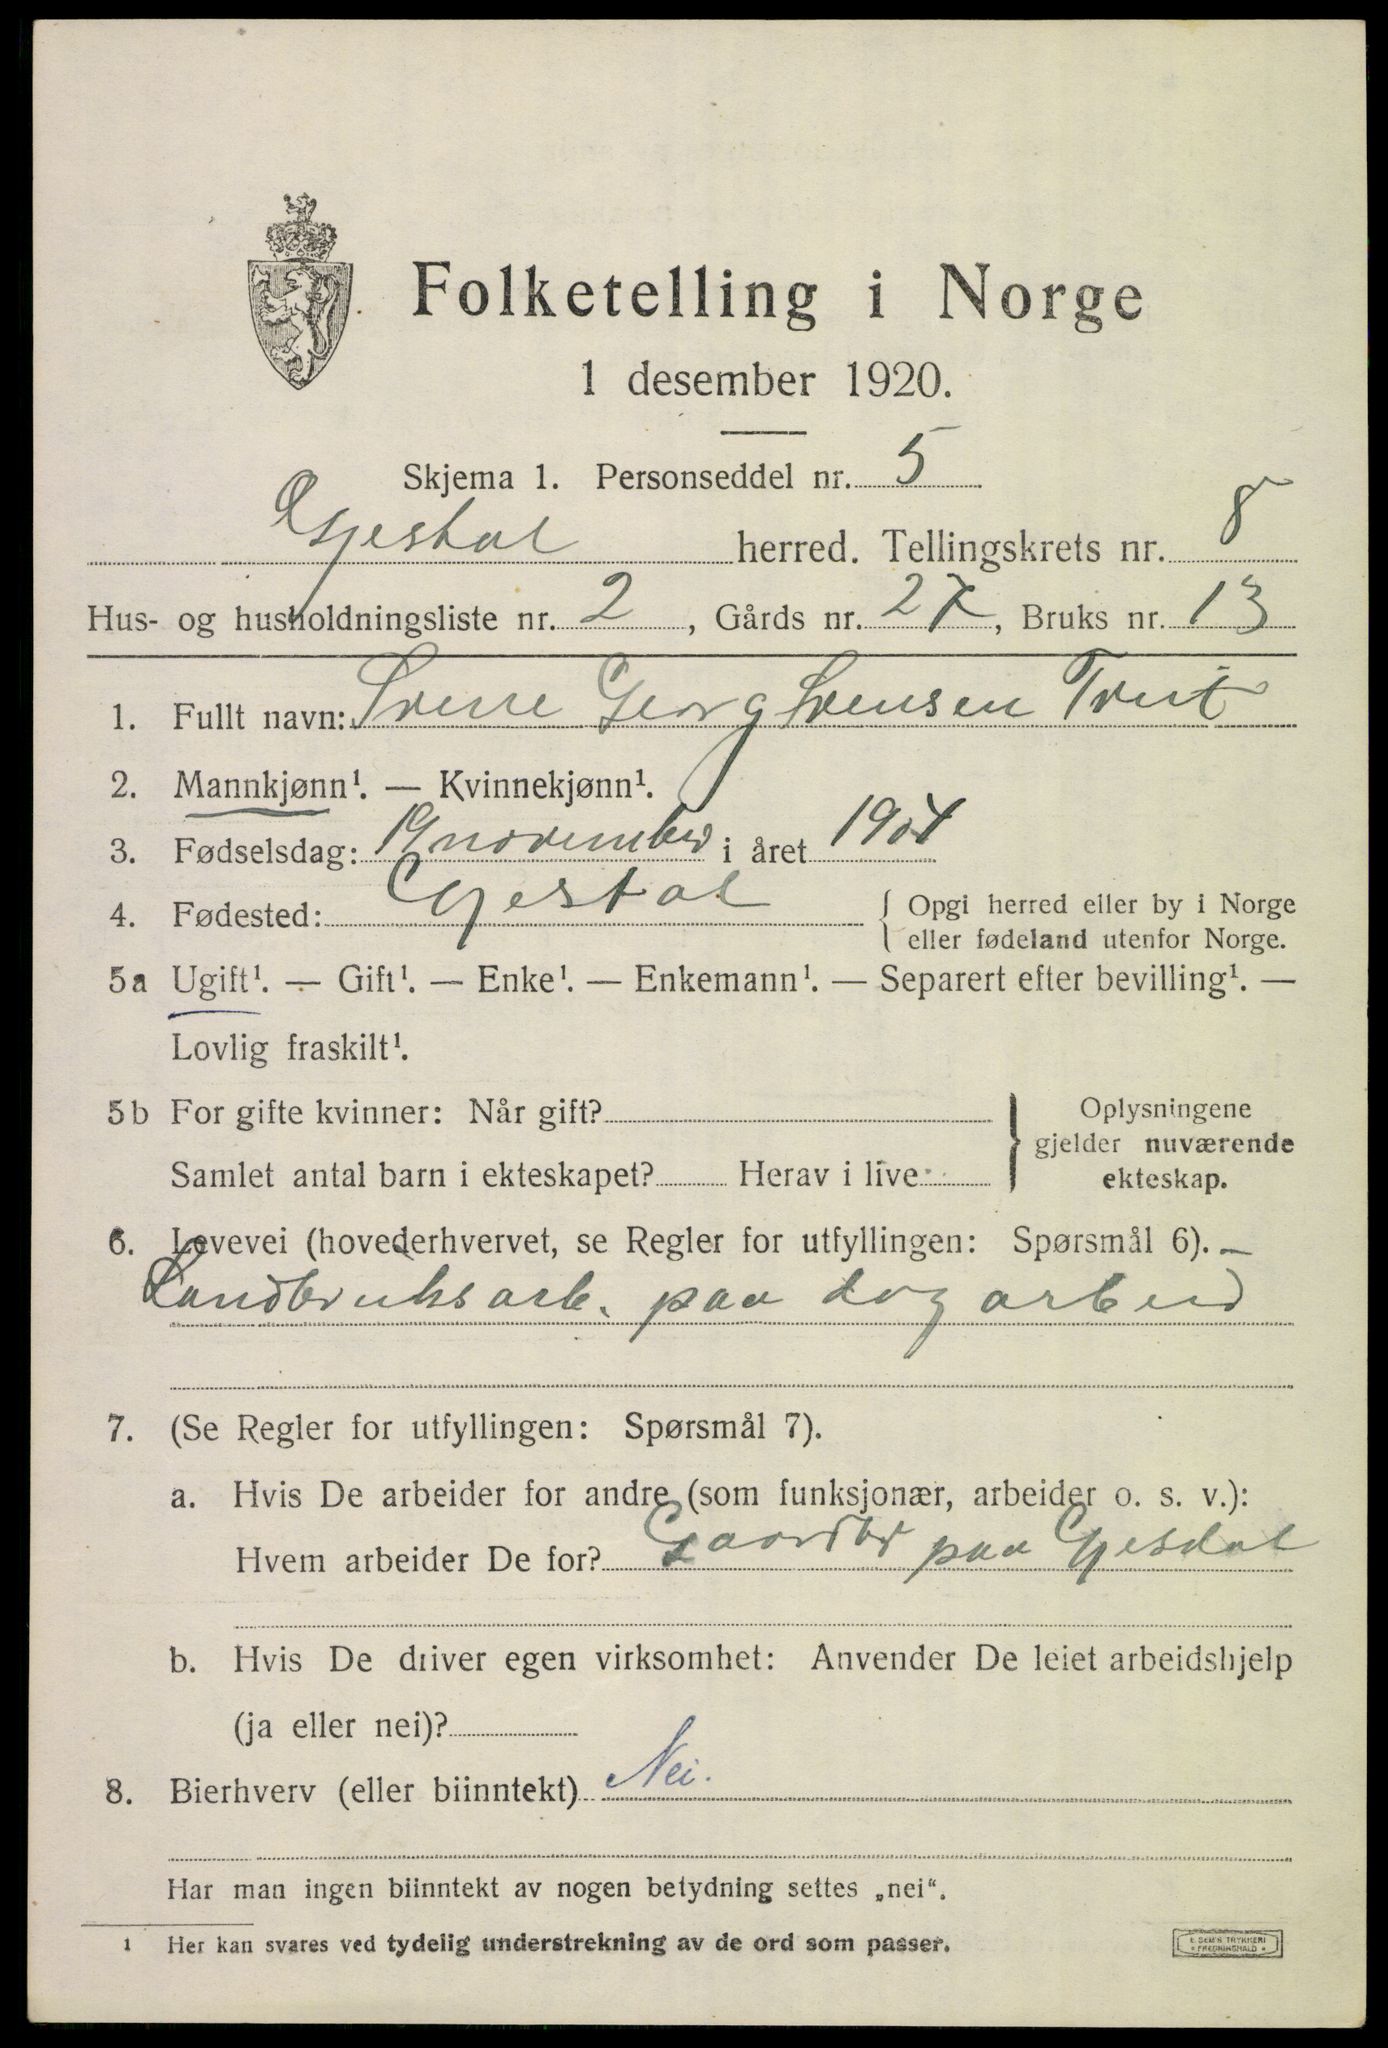 Folketelling i Norge
1 desember 1920.
Skjema 1. Personseddel nr. 5
Gjestal herred. Tellingskrets nr. 8
Hus- og husholdningsliste nr. 2, Gårds nr. 27, Bruks nr. 13
1. Fullt navn: Sverre Georg Svensen Tveit
2. Mannkjønn¹. — Kvinnekjønn¹.
3. Fødselsdag: 19 november i året 1904
4. Fødested: Gjestal { Opgi herred eller by i Norge
eller fødeland utenfor Norge.
5a Ugift¹. — Gift¹. — Enke¹. — Enkemann¹. — Separert efter bevilling¹. —
Lovlig fraskilt¹.
5b For gifte kvinner: Når gift? } Oplysningene
gjelder nuværende
Samlet antal barn i ekteskapet? Herav i live ekteskap.
6. Levevei (hovederhvervet, se Regler for utfyllingen: Spørsmål 6). —
Landbruksarb. paa dag arbeid
7. (Se Regler for utfyllingen: Spørsmål 7).
a. Hvis De arbeider for andre (som funksjonær, arbeider o. s. v.):
Hvem arbeider De for? Gaardbr paa Gjesdal
b. Hvis De driver egen virksomhet: Anvender De leiet arbeidshjelp
(ja eller nei)?
8. Bierhverv (eller biinntekt) Nei.
Har man ingen biinntekt av nogen betydning settes „nei“.
1 Her kan svares ved tydelig understrekning av de ord som passer.
E. SEM'S TRYKKERI
* FREDRIKSHALD *